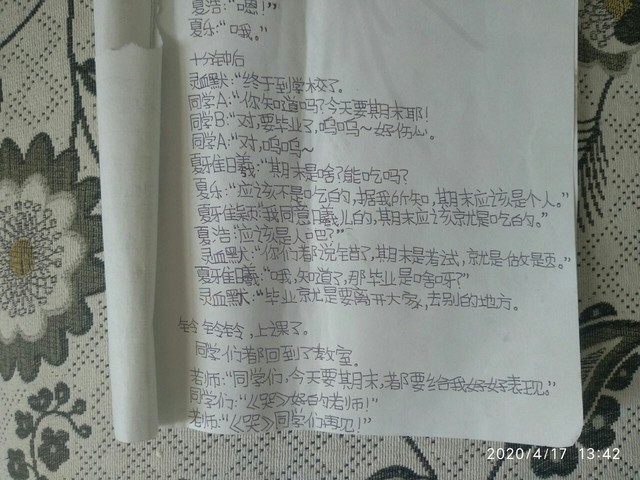 夏浩:“嗯!”
夏乐:“哦。”
十分钟后
灵血默:“终于到学校了。
同学A:“你知道吗?今天要期末耶!
同学B:“对,要毕业了,呜呜~好伤心。
同学A:“对,呜呜~
夏雅佳日羲:“期末是啥?能吃吗?
夏乐:“应该不是吃的,据我所知,期末应该是个人。”
夏雅佳:“我同意日羲儿的,期末应该就是吃的。”
夏浩:“应该是人吧?”
灵血默:“你们都说错了,期末是考试,就是做是页。”
夏雅佳日羲:“哦,知道了,那毕业是啥呀?”
灵血默:“毕业就是要离开大家,去别的地方。
铃铃铃,上课了。
同学们都回到了教室。
老师:“同学们,今天要期末,都要给我好好表现。”
同学们:“《哭》好的老师!”
老师:“《哭》同学们再见!”
2020/4/17 13:42